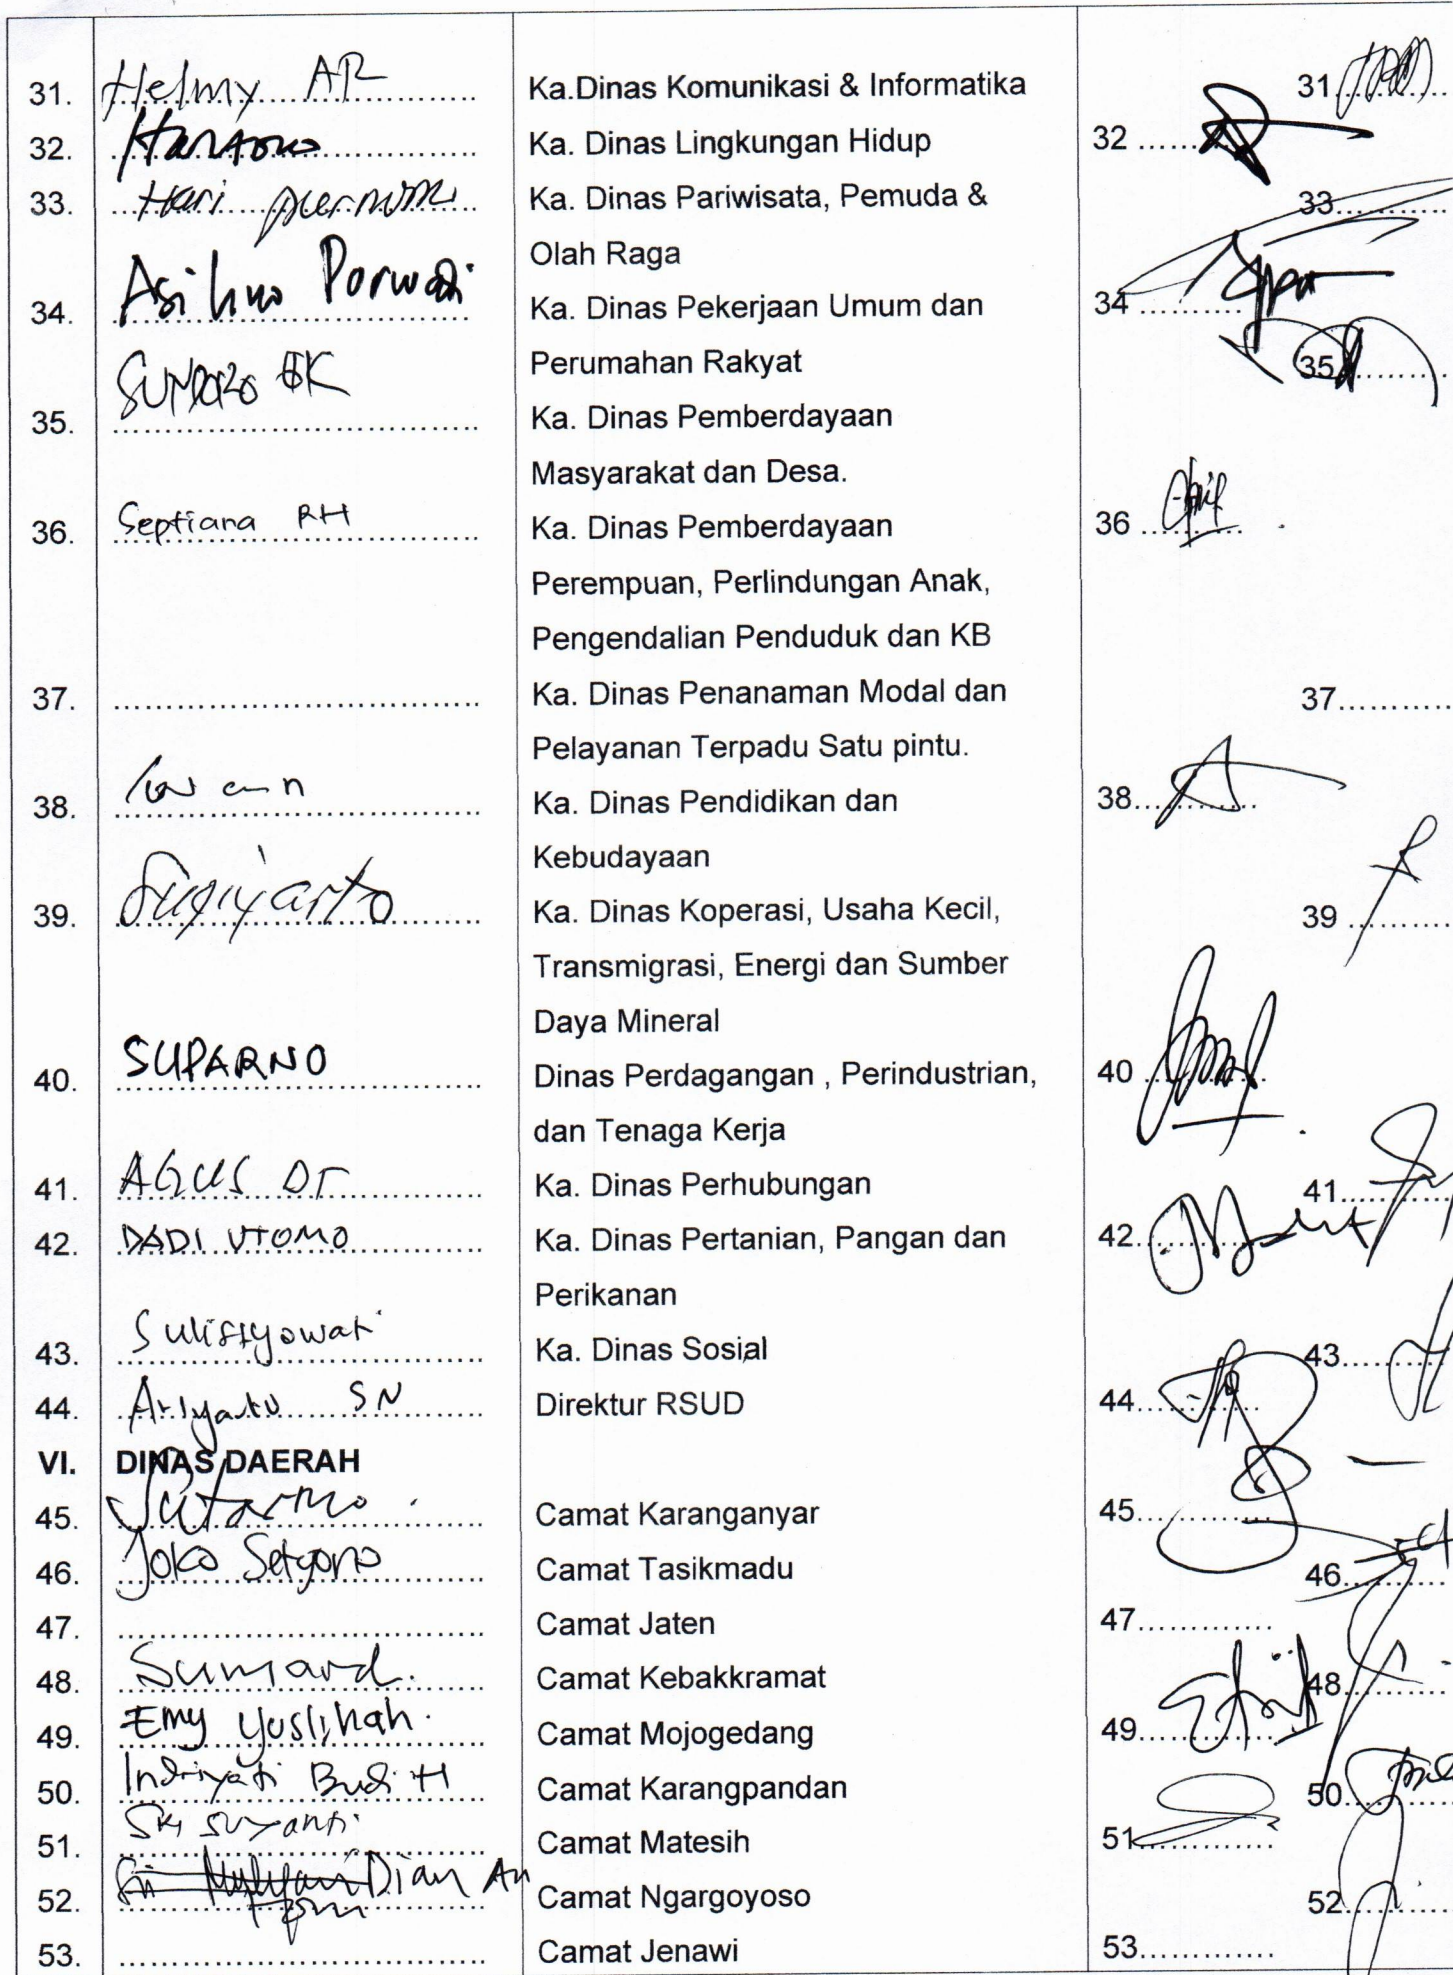 31. Helmy AR Ka.Dinas Komunikasi & Informatika 31..........
32. Hartono Ka. Dinas Lingkungan Hidup 32 ..........
33. Hari purnomo Ka. Dinas Pariwisata, Pemuda & 33..........
Olah Raga
34. Porwadi Ka. Dinas Pekerjaan Umum dan 34 ..........
Perumahan Rakyat
35. ................................ Ka. Dinas Pemberdayaan 35..........
Masyarakat dan Desa.
36. Septiana RH Ka. Dinas Pemberdayaan 36 ..........
Perempuan, Perlindungan Anak,
Pengendalian Penduduk dan KB
37. ................................ Ka. Dinas Penanaman Modal dan 37..........
Pelayanan Terpadu Satu pintu.
38. Ka. Dinas Pendidikan dan 38..........
Kebudayaan
39. Sugiyarto Ka. Dinas Koperasi, Usaha Kecil, 39 ..........
Transmigrasi, Energi dan Sumber
Daya Mineral
40. SUPARNO Dinas Perdagangan , Perindustrian, 40 ..........
dan Tenaga Kerja
41. AGUS DT Ka. Dinas Perhubungan 41..........
42. DADI UTOMO Ka. Dinas Pertanian, Pangan dan 42..........
Perikanan
43. Sulistyowati Ka. Dinas Sosial 43..........
44. Ariyanto SN Direktur RSUD 44..........
VI. DINAS DAERAH
45. Sutarno. Camat Karanganyar 45..........
46. Joko Setyono Camat Tasikmadu 46..........
47. ................................ Camat Jaten 47..........
48. Sunard. Camat Kebakkramat 48..........
49. Emy Yuslihah. Camat Mojogedang 49..........
50. Indriyati Budi H Camat Karangpandan 50..........
51. Sri Suyanti Camat Matesih 51..........
52. Dian Camat Ngargoyoso 52..........
53. ................................ Camat Jenawi 53..........